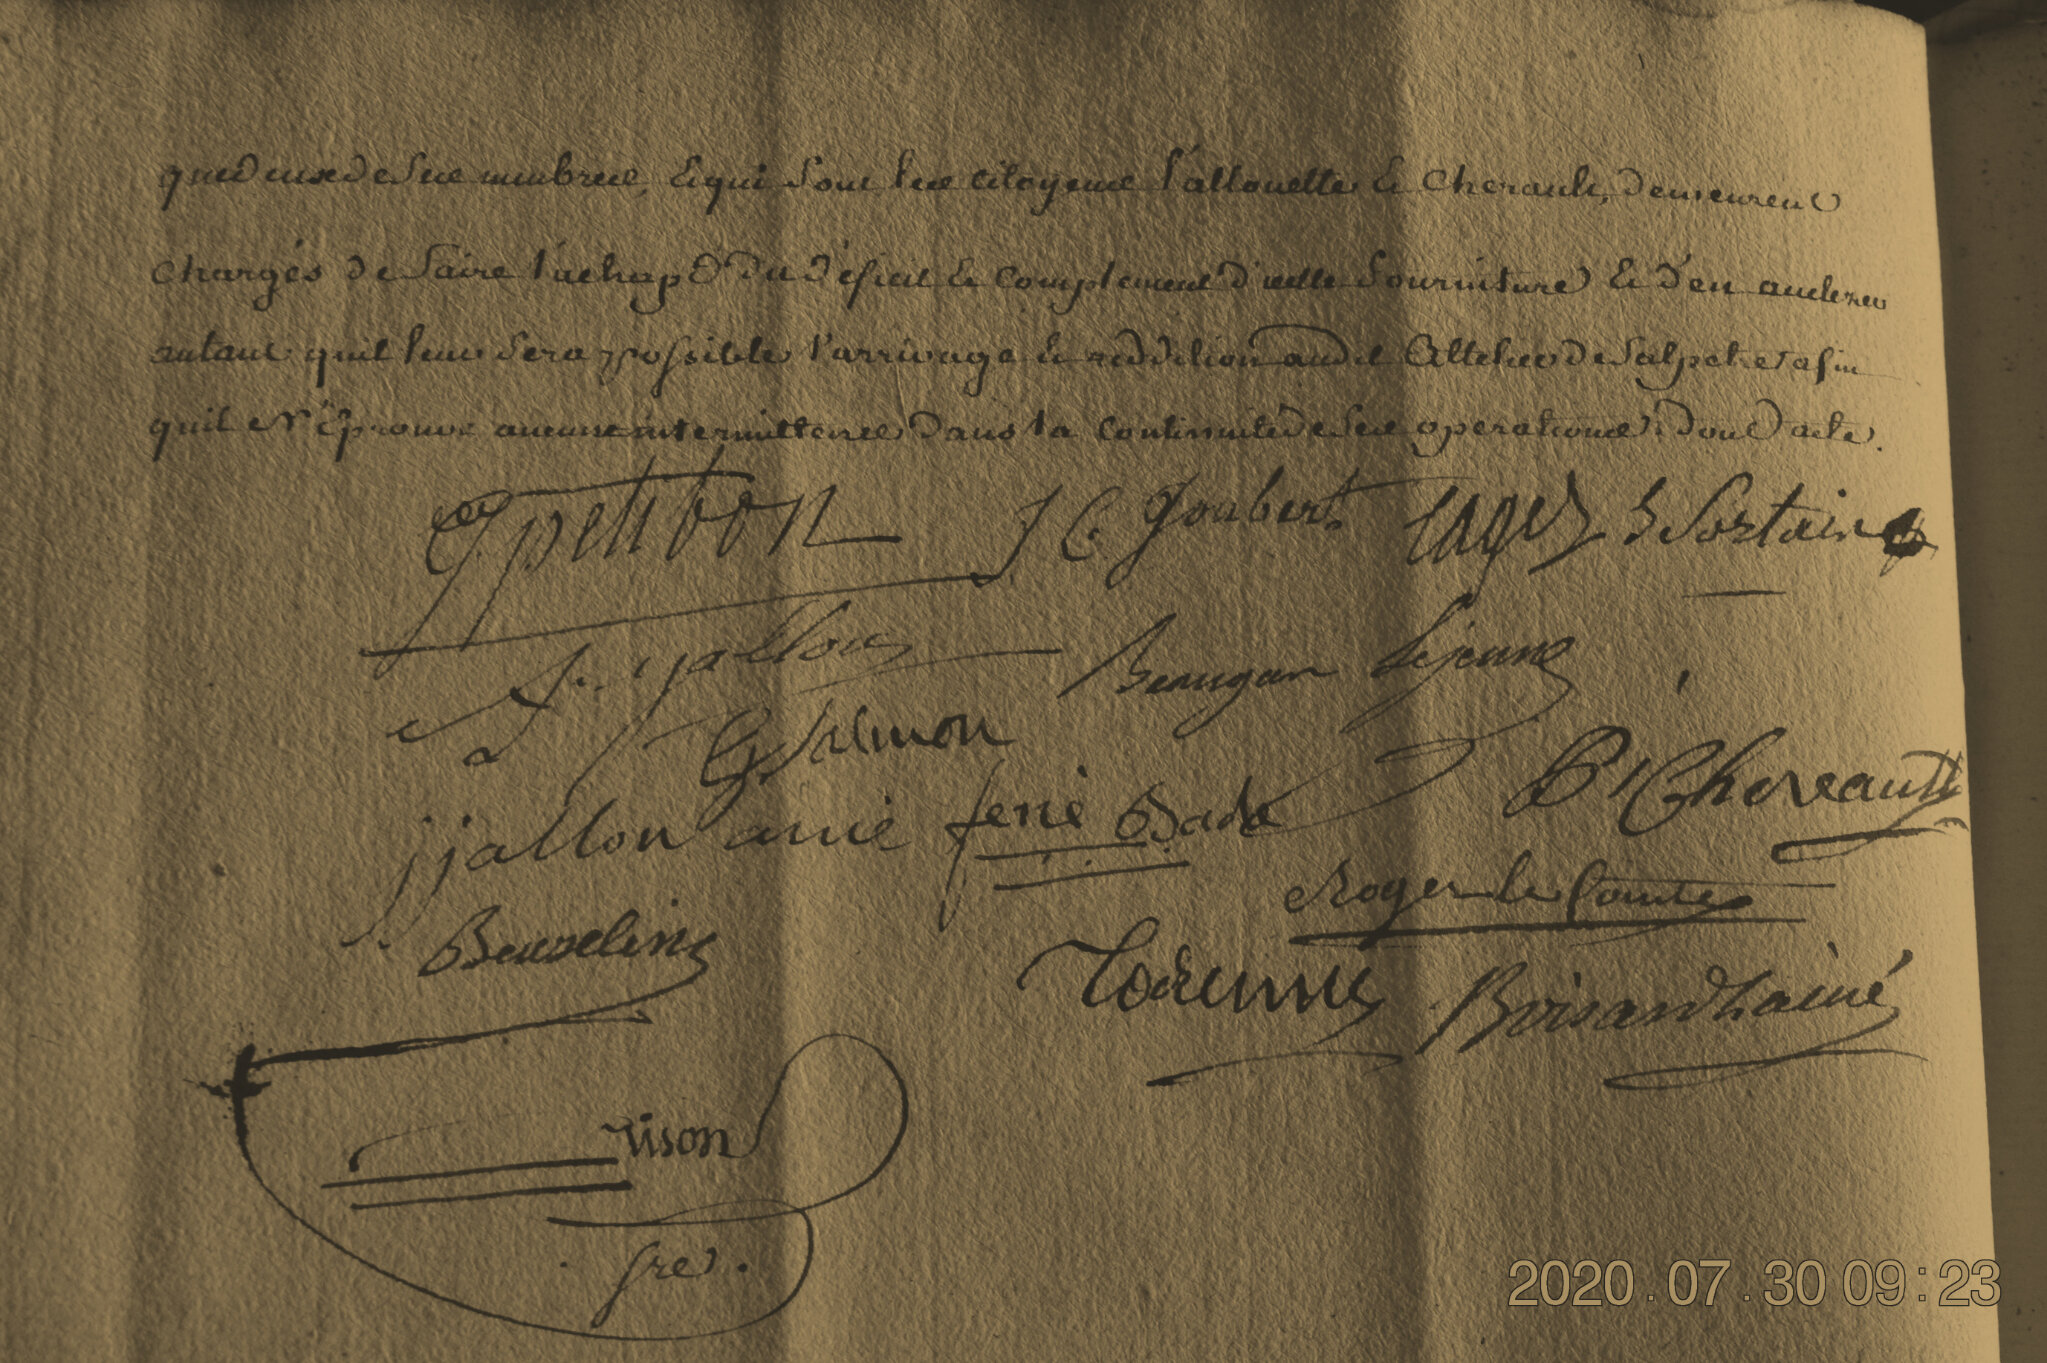 que deux de ses membres, & qui sont les citoyens l'allouette & Cherault, demeurent
chargés de faire l'achapt du déficit & complement d'icelle fourniture & d'en accelerer
autant quil leur sera possible l'arrivage & reddition audit Attelier de Salpetre afin
quil n'Eprouve aucune intermittence dans la Continuité de ses operations. dont acte.
petitbon J C Joubert Lager S Sortain
F. jallon Beaugan Lejeune
G Salmon
P r Chereault
jjallon ainé René Bade
Roger le Comte
Beuvelin
Todenne Boisard Lainé
rison
gre.
2020.07.30 09:23